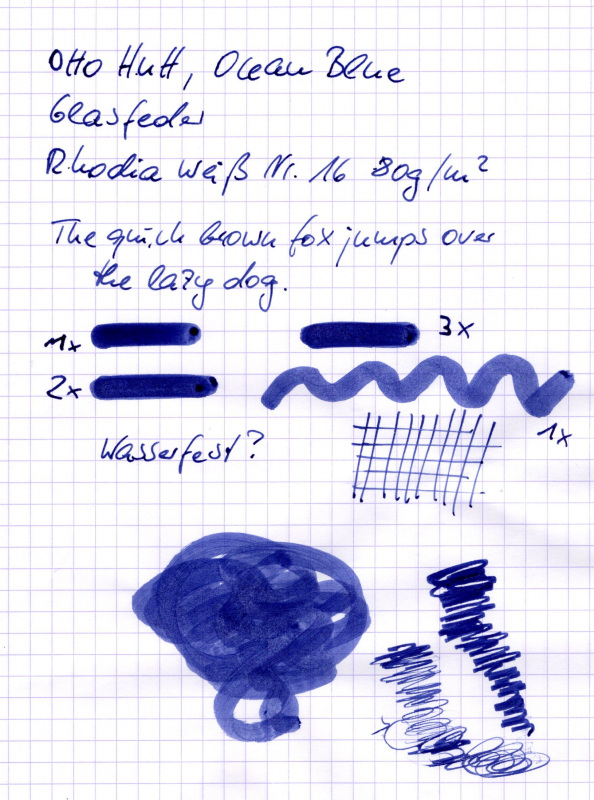 Otto Hutt, Ocean Blue
Glasfeder
Rhodia weiß Nr. 16 80g/m²
The quick brown fox jumps over
the lazy dog.
1x
3x
2x
1x
Wasserfest?